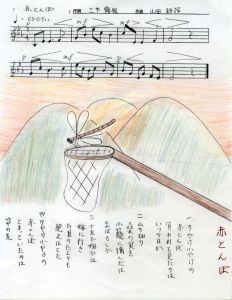 赤とんぼ 作詞 三木 露風 作曲 山田 耕筰
♩=60ぐらい
mf
赤とんぼ
一 夕やけ小やけの
赤とんぼ
負われて見たのは
いつの日か
二 山の畑の
桑の実を
小籠に摘んだは
まぼろしか
三 十五で姐やは
嫁に行き
お里のたよりも
絶えはてた
四 夕やけ小やけの
赤とんぼ
竿の先